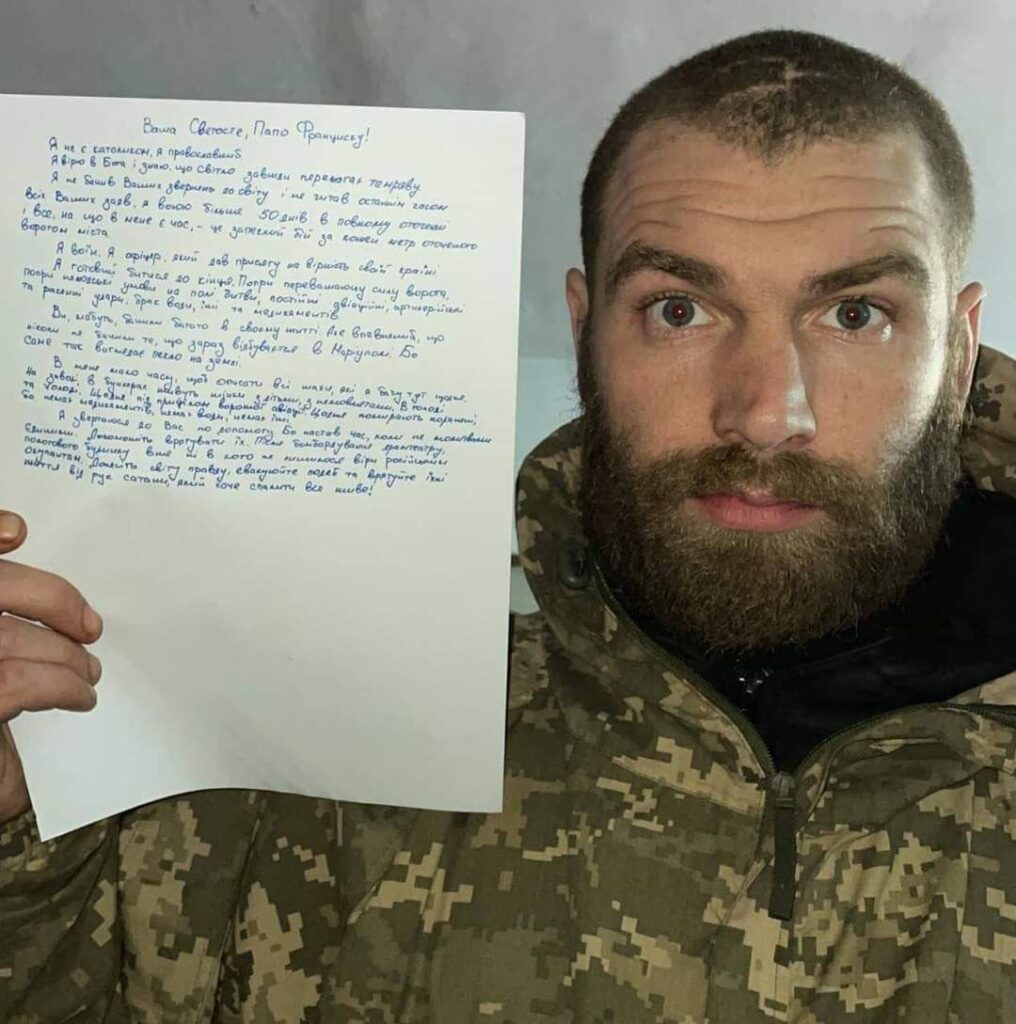 Ваша Святосте, Папо Франциску!
Я не є католиком, я православний.
Я вірю в Бога і знаю, що світло завжди перемагає темряву.
Я не бачив Ваших звернень до світу і не читав останнім часом
всіх Ваших заяв, я воюю більше 50 днів в повному оточенні
і все, на що в мене є час, - це запеклий бій за кожен метр оточеного
ворогом міста.
Я воїн. Я офіцер, який дав присягу на вірність своїй країні.
Я готовий битися до кінця. Попри переважаючу силу ворога,
попри нелюдські умови на полі битви, постійні авіаційні, артилерійські
та ракетні удари, брак води, їжі та медикаментів.
Ви, мабуть, бачили багато в своєму житті. Але впевнений, що
ніколи не бачили те, що зараз відбувається в Маріуполі. Бо
саме так виглядає пекло на землі.
В мене мало часу, щоб описати всі жахи, які я бачу тут щодня.
На заводі в бункерах живуть жінки з дітьми, з немовлятами. В голоді
та холоді. Щодня під прицілом ворожої авіації. Щодня помирають поранені,
бо немає медикаментів, немає води, немає їжі.
Я звертаюся до Вас по допомогу. Бо настав час, коли не молитвами
єдиними. Допоможіть врятувати їх. Після бомбардування драмтеатру,
пологового будинку вже ні в кого не лишилося віри російським
окупантам. Донесіть світу правду, евакуюйте людей та врятуйте їхні
життя від рук сатани, який хоче спалити все живе!